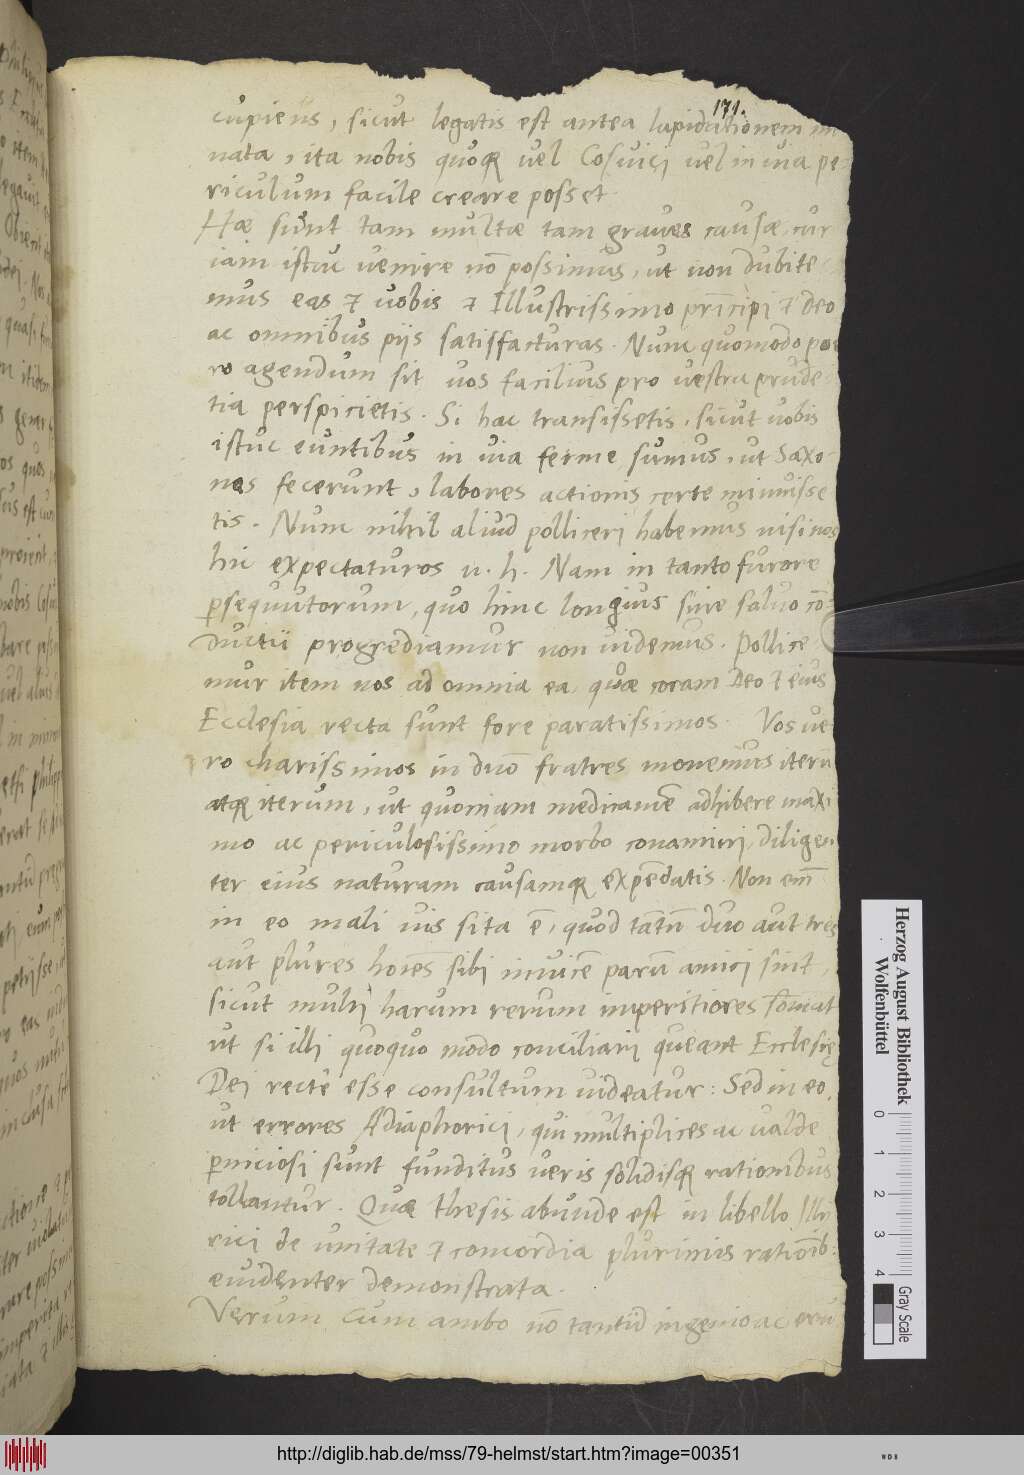 171.
cupiens, sicut legatis est antea lapidationem mi
nata, ita nobis quoq vel Cosvici vel in via pe-
riculum facile creare posset
Hæ sunt tam multæ tam graves causæ, cur
iam istuc venire nō possimus, ut non dubite-
mus eas et vobis et Illustrissimo prīcipi et deo
ac omnibus piis satisfacturas. Nunc quomodo por
ro agendum sit vos facilius pro vestra prudē-
tia perspicietis. Si hac transissetis, sicut vobis
istuc euntibus in via ferme sumus, ut Saxo-
nes fecerunt, labores actionis certe minuisse
tis. Nunc nihil aliud polliceri habemus nisi nos
hic expectaturos u. h. Nam in tanto furore
persequutorum, quo hinc longius sine salvo cō-
ductu progrediamur non videmus. Pollice-
mur item nos ad omnia ea, quæ coram Deo et eius
Ecclesia recta sunt fore paratissimos. Vos ve-
ro charissimos in dnō fratres monemus iterū
atq iterum, ut quoniam medicamē adhibere maxi
mo ac periculosissimo morbo conamini, diligen
ter eius naturam causamq expēdatis. Non em̄
in eo mali vis sita ē, quod tantū duo aut tres
aut plures hoīes sibi invicē parū amici sint,
sicut multi harum rerum imperitiores sōniāt
ut si illi quoquo modo conciliari queant Ecclesię
Dei recte esse consultum videatur: Sed in eo,
ut errores Adiaphorici, qui multiplices ac valde
perniciosi sunt funditus veris solidisq rationibus
tollantur. Quæ thesis abunde est in libello Illy
rici de unitate et concordia plurimis rationib:
evidenter demonstrata.
Verum cum ambo nō tantū ingenio ac eru
Herzog August Bibliothek
Wolfenbüttel
0 1 2 3 4
Gray Scale
http://diglib.hab.de/mss/79-helmst/start.htm?image=00351